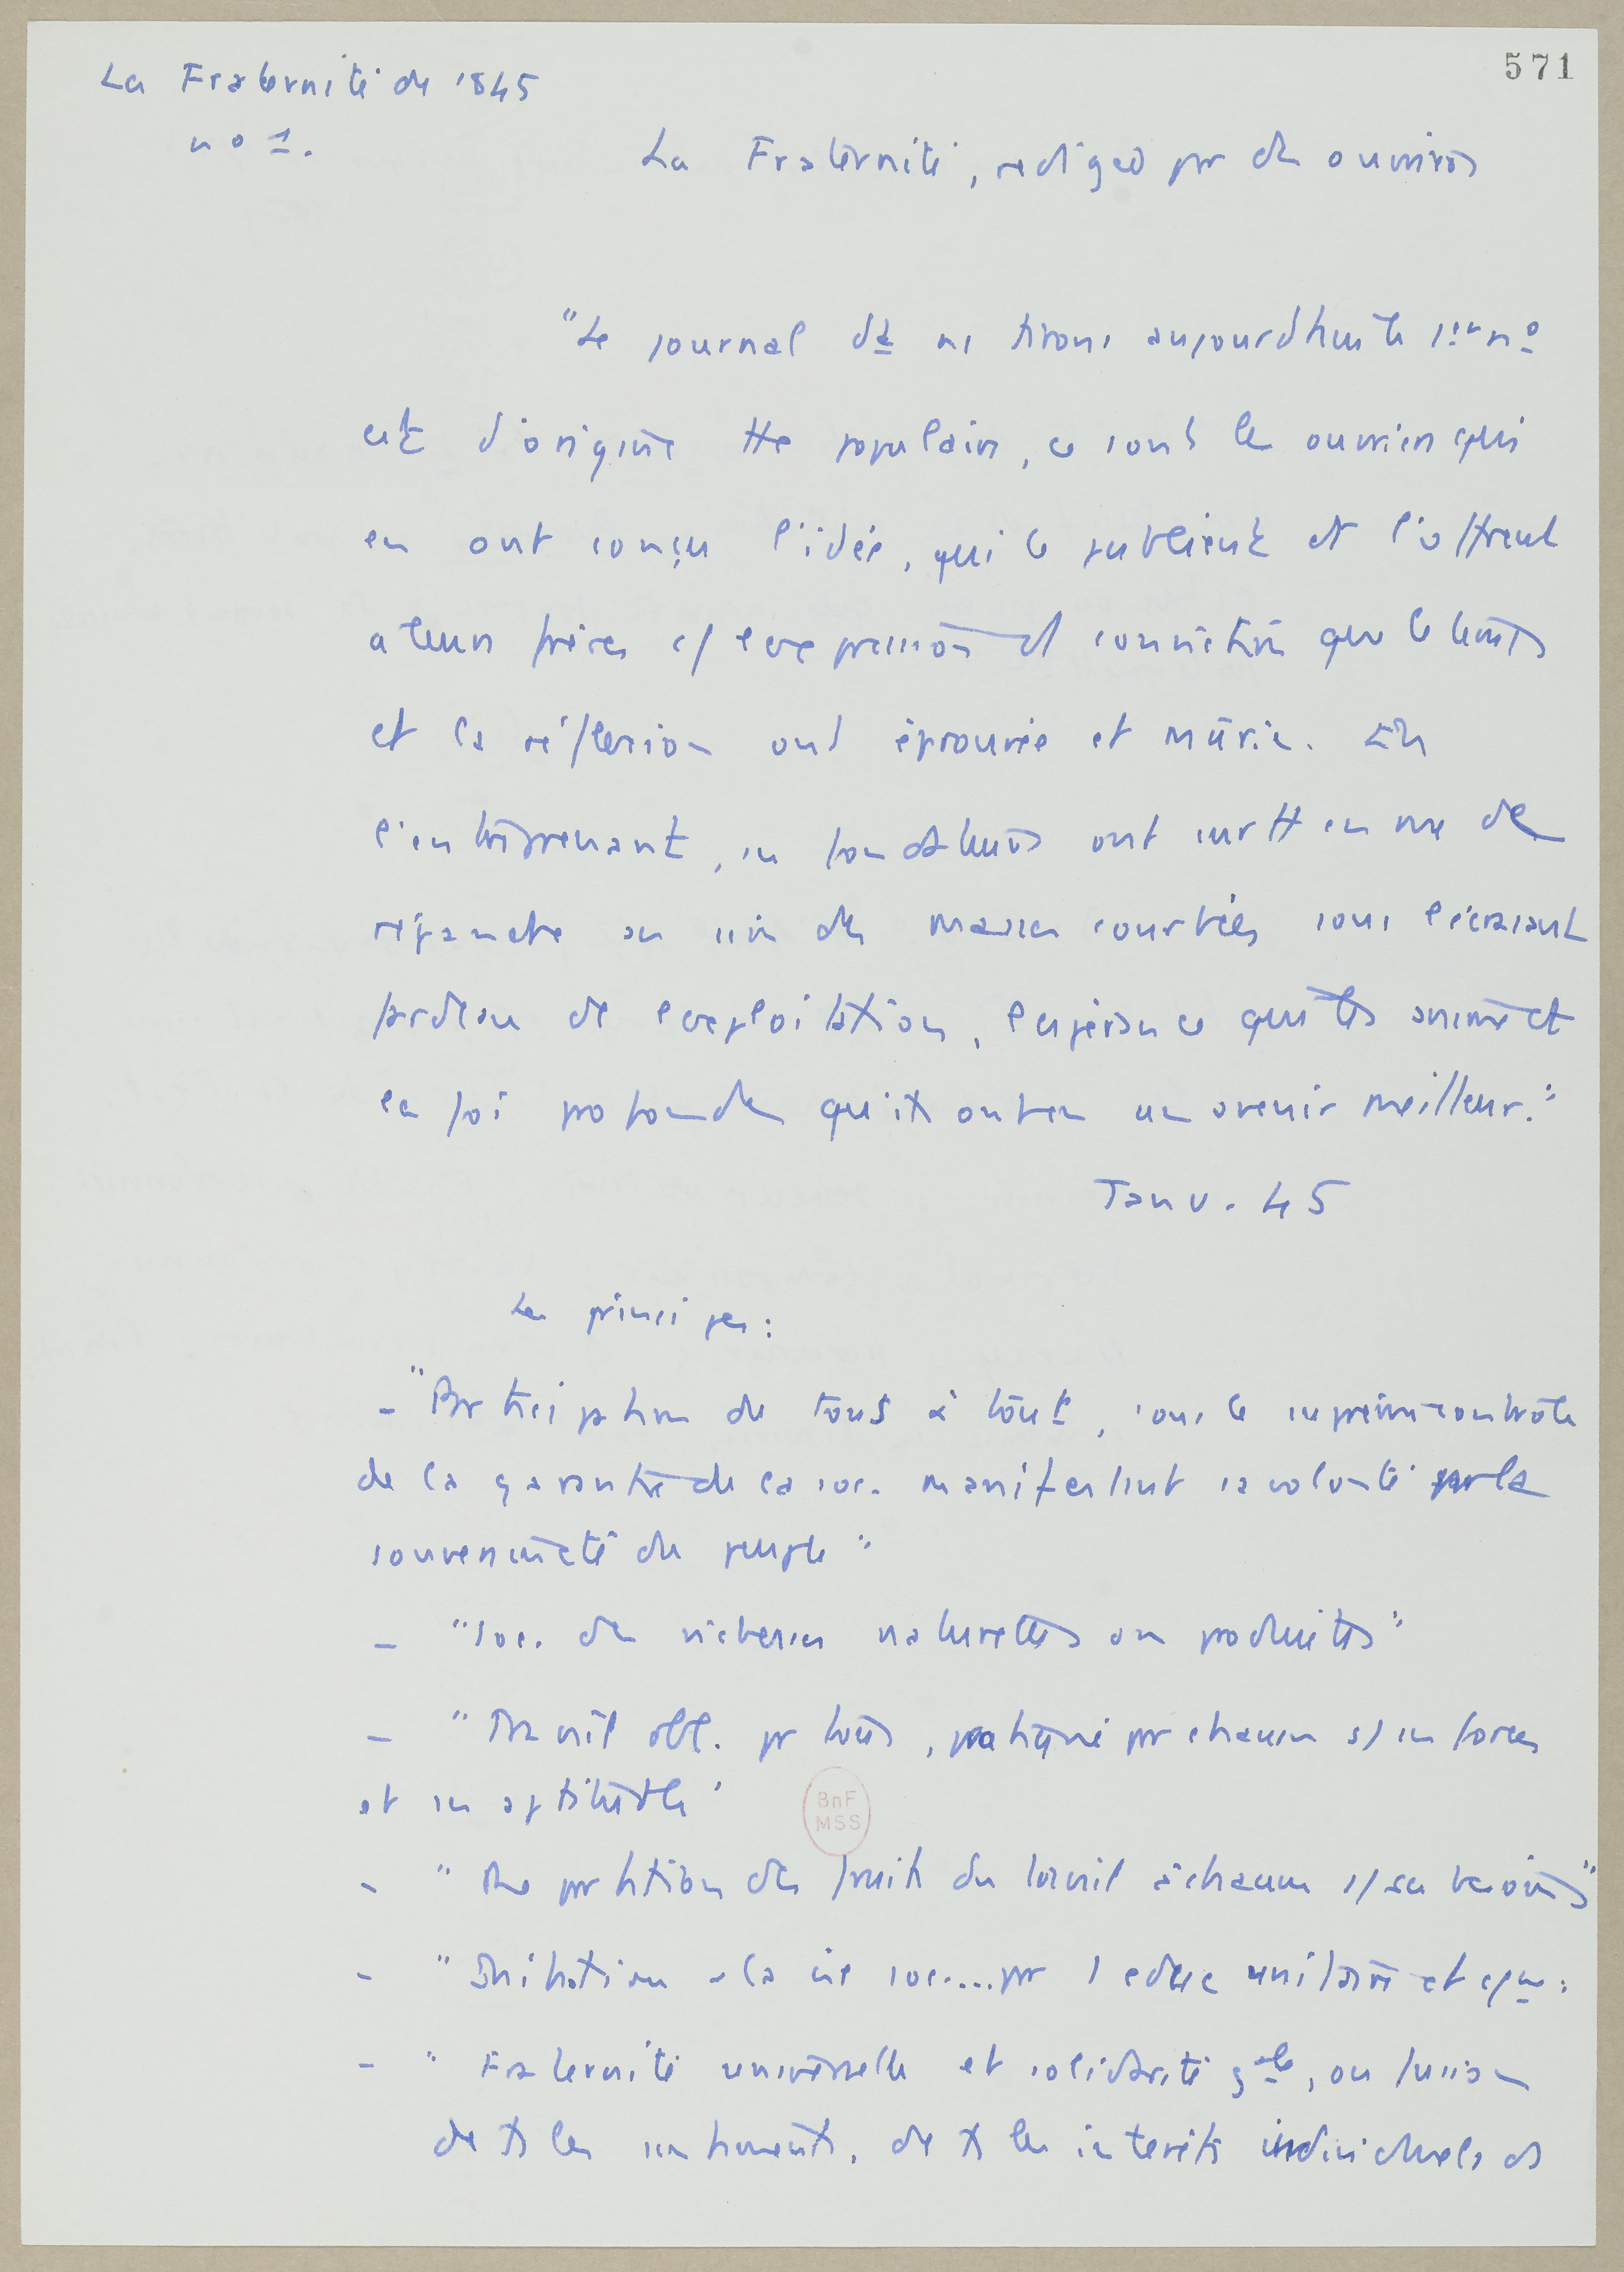 571
La Fraternité de 1845
no 1.
La Fraternité, rédigée par des ouvriers
"Le journal dt ns tirons aujourd'hui le 1er no
est d'origine tte populaire, ce sont les ouvriers qui
en ont conçu l'idée, qui le publient et l'offrent
a leurs frères c/ expression d convictions que le temps
et la réflexion ont éprouvée et mûrie. En
l'entreprenant, ses fondateurs ont surtt en vue de
répandre au sein des masses courbées sous l'écrasant
fardeau de l'exploitation, l'espérance qui les anime et
la foi profonde qu'ils ont en un avenir meilleur."
Janv. 45
Les principes :
- "Participation de tous à tout, sous le suprême contrôle
de la garantie de la soc. manifestant sa volonté par la
souveraineté du peuple"
- "Soc. des richesses naturelles ou produites"
- "Travail obl. pr tous, pratiqué par chacun s/ ses forces
et ses aptitudes"
- "Répartition des fruits du travail à chacun s/ ses besoins"
- "Initiation à la vie soc.... par l educ unitaire et
- "Fraternité universelle et solidarité gale, ou fusion
de ts les sentiments, de ts les intérêts individuels ds
BnF
MSS